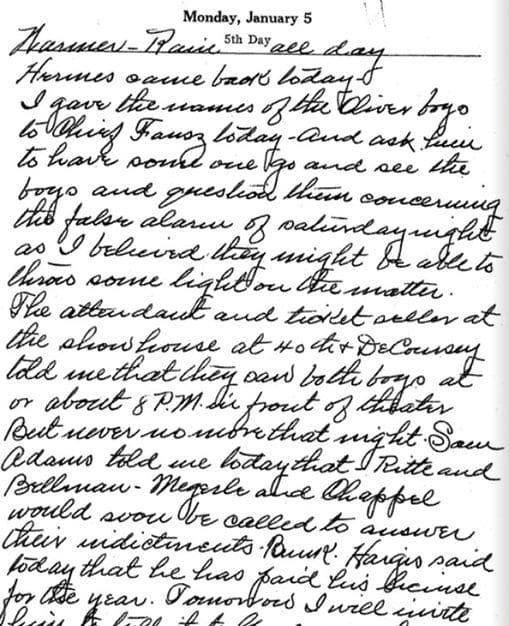 Monday, January 5
5th Day
Warmer - Rain all day
Hermes came back today
I gave the names of the Oliver boys
to Chief Fausz today - And ask him
to have some one go and see the
boys and question them concerning
the false alarm of saturday night
as I believed they might be able to
throw some light on the matter.
The attendant and ticket seller at
the show house at 40th & DeCoursey
told me that they saw both boys at
or about 8 P.M. in front of theater
But never no more that night. Sam
Adams told me today that Ritte and
Bellman - Megerle and Chappel
would soon be called to answer
their indictments. Bunk. Hargis said
today that he has paid his license
for the year. Tomorrow I will invite
him to